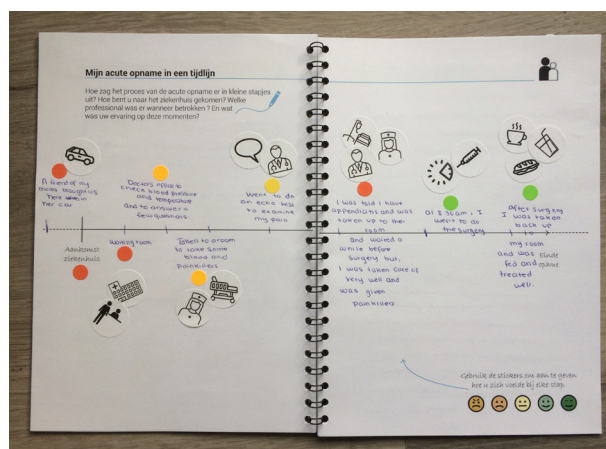 Mijn acute opname in een tijdlijn
Hoe zag het proces van de acute opname er in kleine stapjes
uit? Hoe bent u naar het ziekenhuis gekomen? Welke
professional was er wanneer betrokken ? En wat
was uw ervaring op deze momenten?
A friend of my
brought us
here in
her car
Doctors office to
check blood pressure
and temperature
and to answer a
few questions.
Went to do
an echo test
to examine
my pain
Aankomst
ziekenhuis
Waiting room
Taken to a room
to take some
blood and
painkillers
I was told I have
appendicitis and was
taken up to the
room
and waited a
while before
surgery but,
I was taken care of
very well and
was given
painkillers
At 8:30am, I
went to do
the surgery
After surgery
I was taken
back up
my room
and was
fed and
treated
well.
Einde
opname
Gebruik de stickers om aan te geven
hoe u zich voelde bij elke stap.